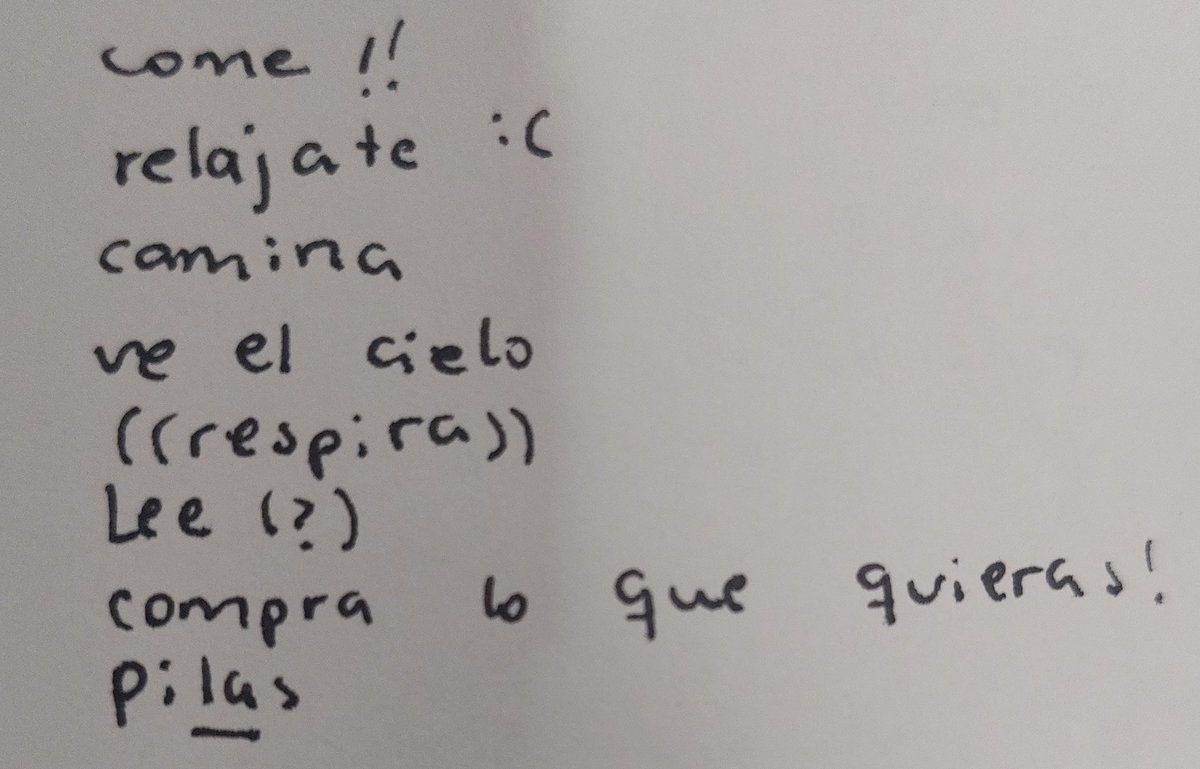 come !!
relájate :(
camina
ve el cielo
((respira))
Lee (?)
compra lo que quieras!
pilas